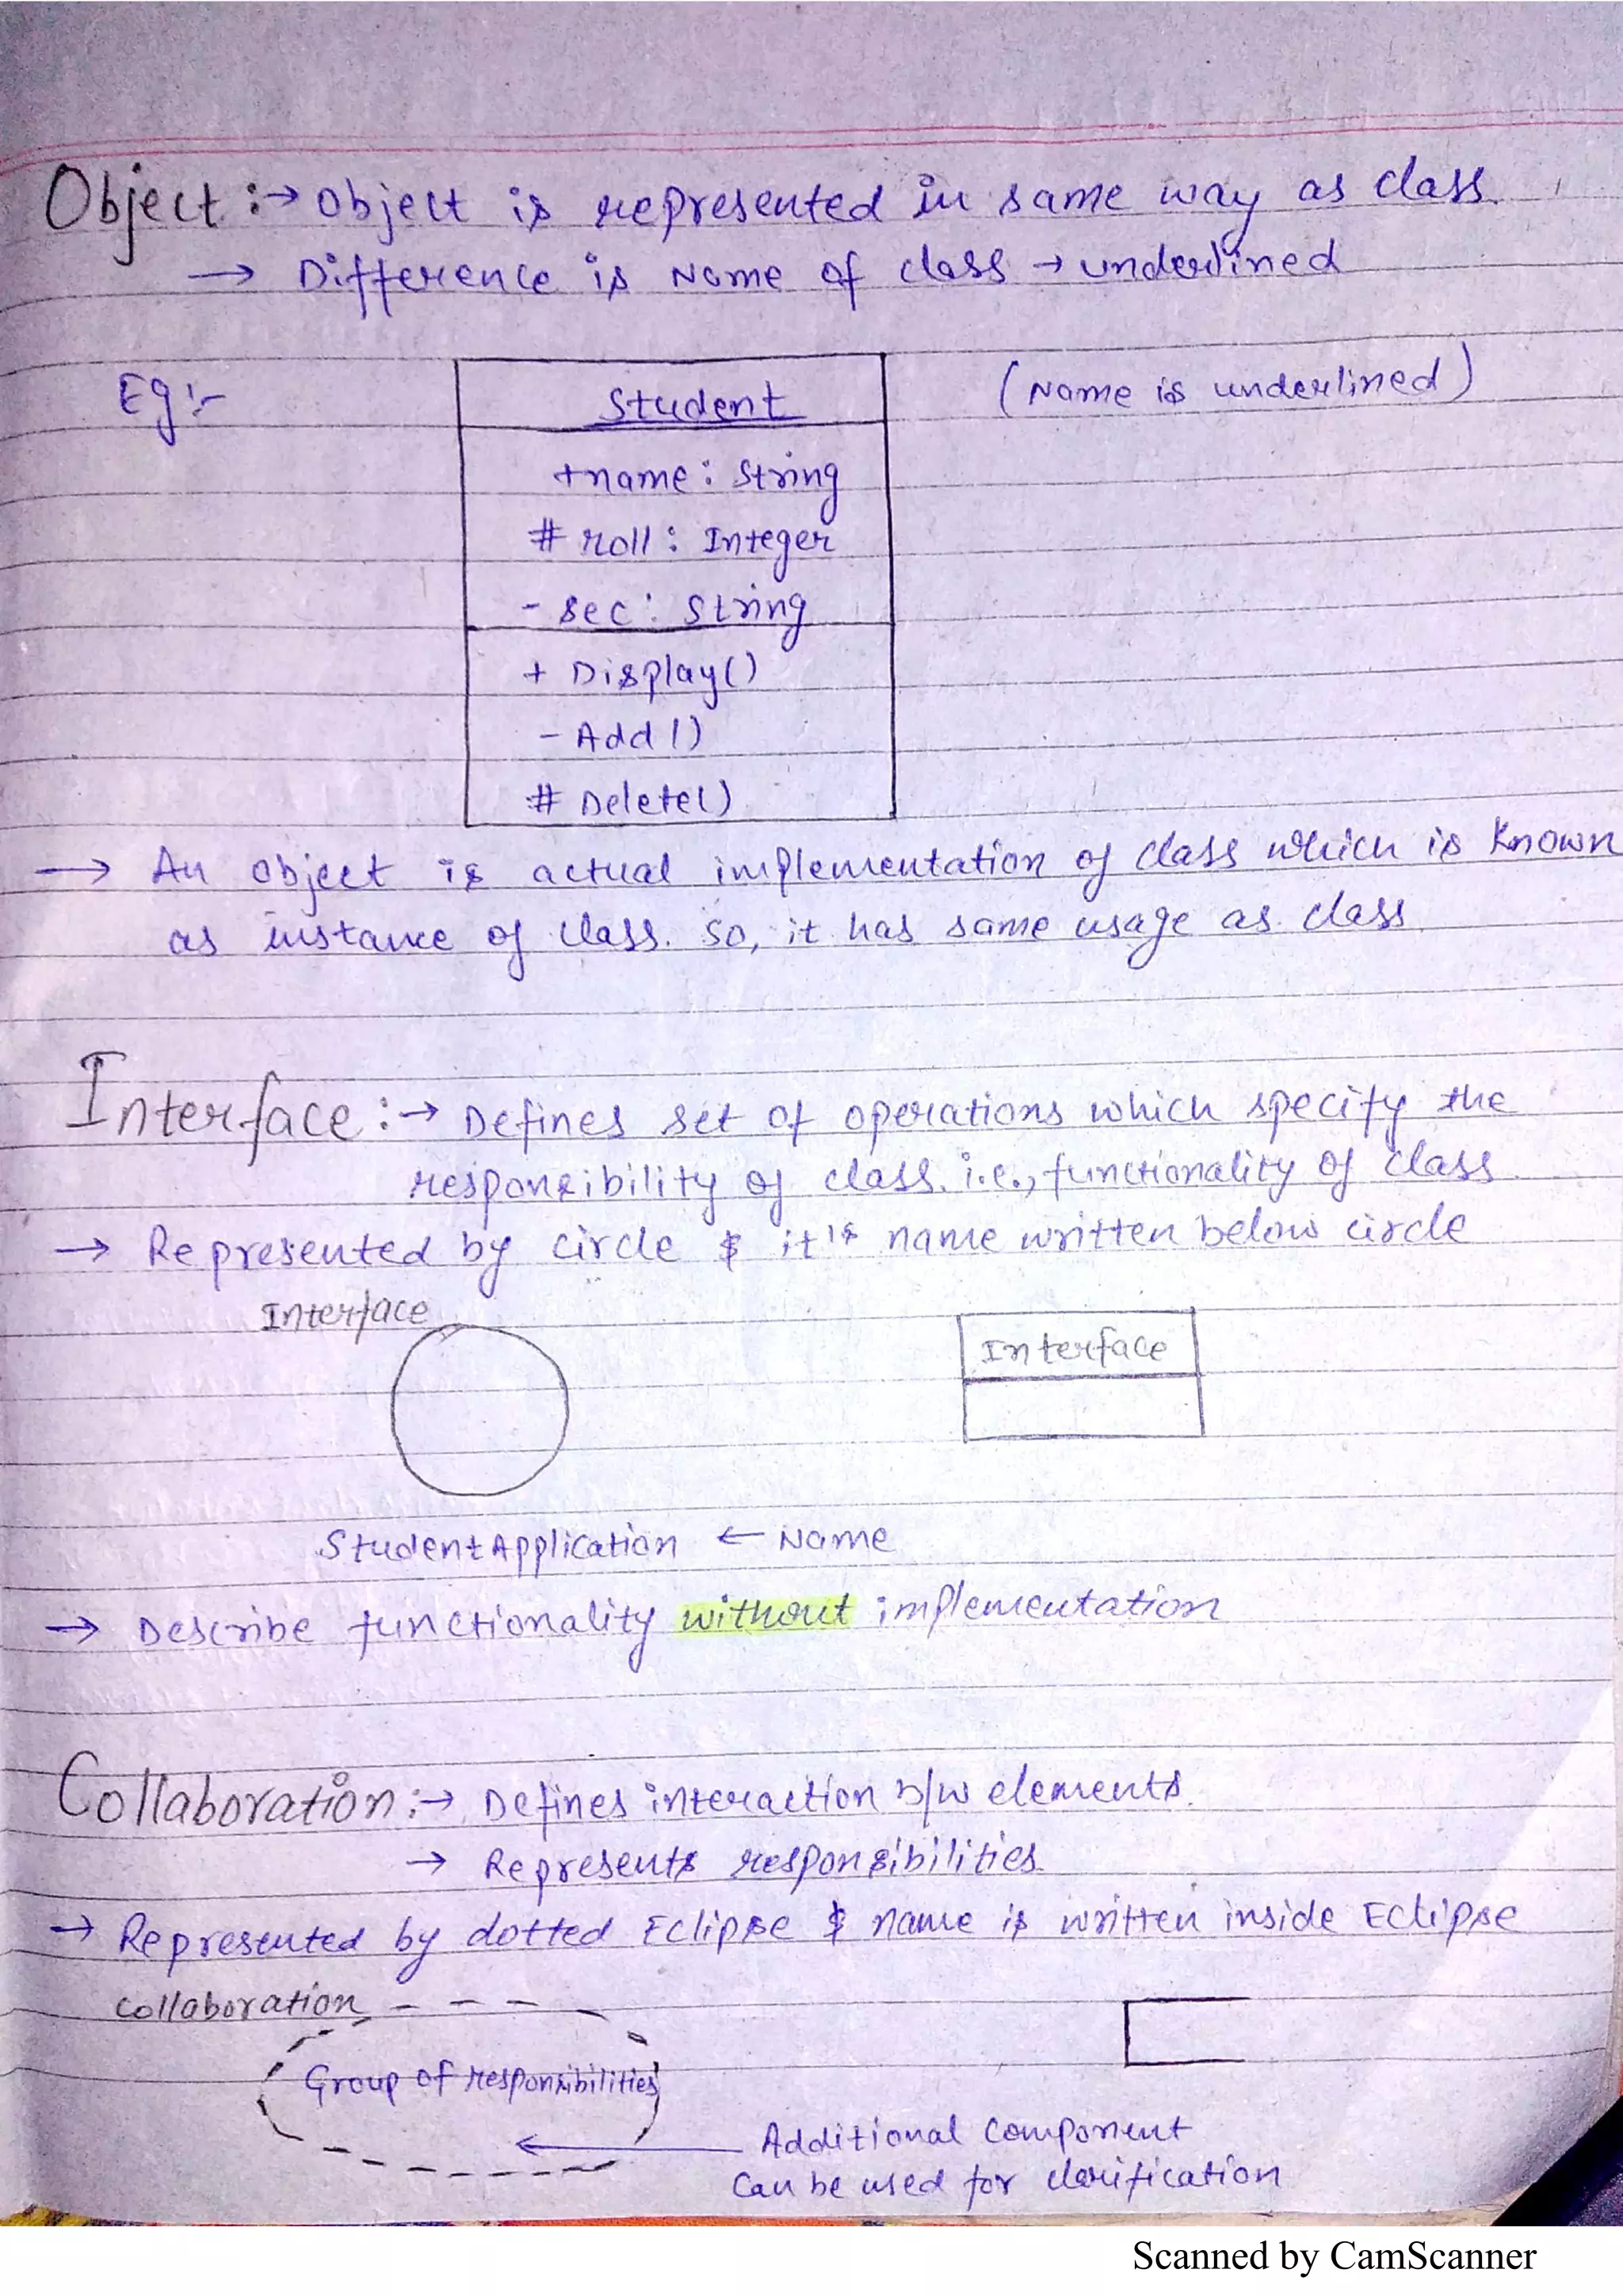 Object :→ Object is represented in same way as class.
→ Difference is Name of class → underlined
Eg :-
Student
(Name is underlined)
+name : String
# roll : Integer
- sec : String
+ Display()
- Add()
# Delete()
→ An object is actual implementation of class which is known
as instance of class. So, it has same usage as class.
Interface :→ Defines set of operations which specify the
responsibility of class. i.e., functionality of class.
→ Represented by circle & it's name written below circle
Interface
Interface
StudentApplication ← Name
→ Describe functionality without implementation
Collaboration :→ Defines interaction b/w elements.
→ Represents responsibilities.
→ Represented by dotted Eclipse & name is written inside Eclipse
Collaboration
Group of responsibilities
← Additional Component
Can be used for clarification
Scanned by CamScanner